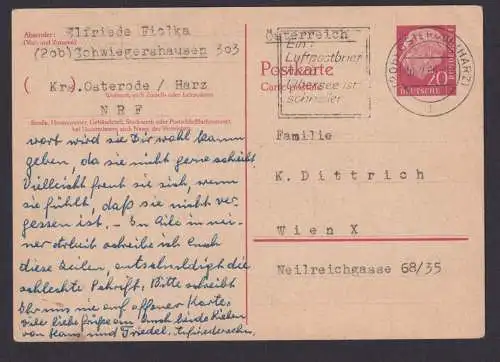 Absender: Elfriede Fiolka
(Vor- und Zuname)
(20b) Schwiegershausen 303
Krs. Osterode / Harz
Wohnort, auch Zustell- oder Leitpostamt
N R F
Straße, Hausnummer, Gebäudeteil, Stockwerk oder Postschließfachnummer;
bei Untermietern auch Name des Vermieters
wort wird sie Dir wohl kaum
geben, da sie nicht gerne schreibt
Vielleicht freut sie sich, wenn
sie fühlt, daß sie nicht ver-
gessen ist. – In Eile in mei-
ner Arbeit schreibe ich Euch
diese Zeilen, entschuldigt die
schlechte Schrift. Bitte schreibt
Ihr uns nie auf offener Karte.
Viele liebe Grüße an Euch beide Lieben
von Hans und Friedel. Aufwiedersehn.
Österreich
Ein
Luftpostbrief
Übersee ist
schneller
Postkarte
Carte postale
(20b) OSTERODE (HARZ)
20
DEUTSCHE
BUNDESPOST
Familie
K. Dittrich
Wien X
Neilreichgasse 68/35